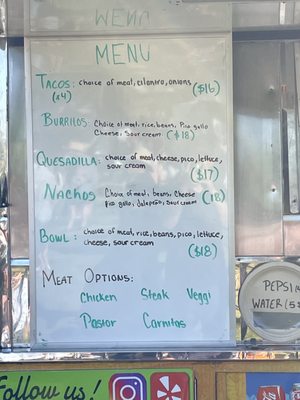 MENU
MENU
TACOS: choice of meat, cilantro, onions ($16)
(x4)
BURRITOS: Choice of meat, rice, beans, Pico gallo
Cheese, Sour cream ($18)
QUESADILLA: choice of meat, cheese, pico, lettuce,
sour cream
($17)
NACHOS Choice of meat, beans, Cheese (18)
Pico gallo, Jalapeño, Sour cream
BOWL: choice of meat, rice, beans, pico, lettuce,
cheese, sour cream
($18)
MEAT OPTIONS:
Chicken Steak Veggi
Pastor Carnitas
PEPSI
WATER
Follow us!